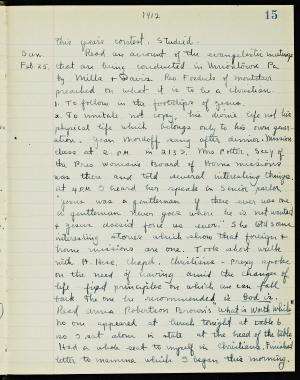 1912
15
this years contest. Studied.
Sun. Read an account of the evangelistic meetings
Feb. 25. that are being conducted in Uniontown Pa
by Mills & Davis. Rev of Montclair
preached on what it is to be a Christian.
1. To follow in the footsteps of Jesus.
2. To imitate not copy, his divine life not his
physical life which belongs only to his own gener-
ation. Jean along after dinner. Mission
class at 2 P.M. in Miss Potter, Sec'y of
the Pres Woman's Board of Home missions
was there and told several interesting things.
at 4 P.M. I heard her speak in Senior parlor
"Jesus was a gentleman if there ever was one
a gentleman never goes where he is not wanted
& Jesus doesnt force us ever." She told some
interesting stories which show that foreign &
home missions are one. Took short walk
with H. chapel. Christians - Prexy spoke
on the need of having amid the changes of
life fixed principles on which we can fall
back the one he recommended is "God is."
Read Anna Robertson Brown's What is Worth While
no one appeared at lunch tonight at table 6
so I sat alone in state at the head of the table
Had a whole seat to myself in Christians. Finished
letter to mamma which I began this morning.